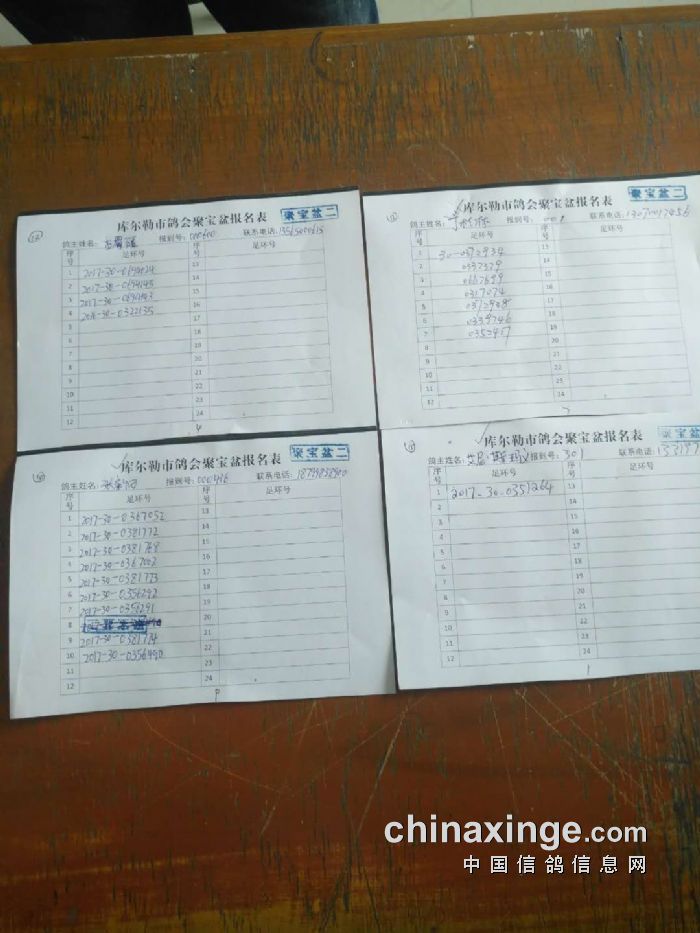 库尔勒市鸽会聚宝盆报名表
聚宝盆二
鸽主姓名: 报到号:000600 联系电话:
序号 足环号 序号 足环号
1 2017-30-0694124 13
2 2017-30-0694145 14
3 2017-30-0694143 15
4 2016-30-0322135 16
5 17
6 18
7 19
8 20
9 21
10 22
11 23
12 24
4
库尔勒市鸽会聚宝盆报名表
聚宝盆二
鸽主姓名: 报到号: 联系电话:
序号 足环号 序号 足环号
1 30-0372934 13
2 0332329 14
3 0667699 15
4 0317074 16
5 0372908 17
6 0339746 18
7 0352417 19
8 20
9 21
10 22
11 23
12 24
7
库尔勒市鸽会聚宝盆报名表
聚宝盆二
鸽主姓名: 报到号:000486 联系电话:
序号 足环号 序号 足环号
1 2017-30-0367052 13
2 2017-30-0381772 14
3 2017-30-0381768 15
4 2017-30-0367002 16
5 2017-30-0381773 17
6 2017-30-0356292 18
7 2017-30-0356291 19
8 20
9 2017-30-0381774 21
10 2017-30-0356490 22
11 23
12 24
9
库尔勒市鸽会聚宝盆报名表
聚宝盆二
鸽主姓名: 报到号:301 联系电话:
序号 足环号 序号 足环号
1 2017-30-0351264 13
2 14
3 15
4 16
5 17
6 18
7 19
8 20
9 21
10 22
11 23
12 24
1
chinaxinge.com
中国信鸽信息网